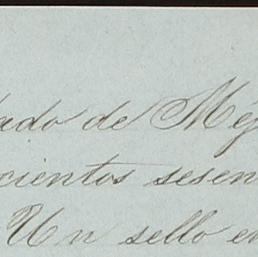 tado de Méj
cientos sesen
Un sello en